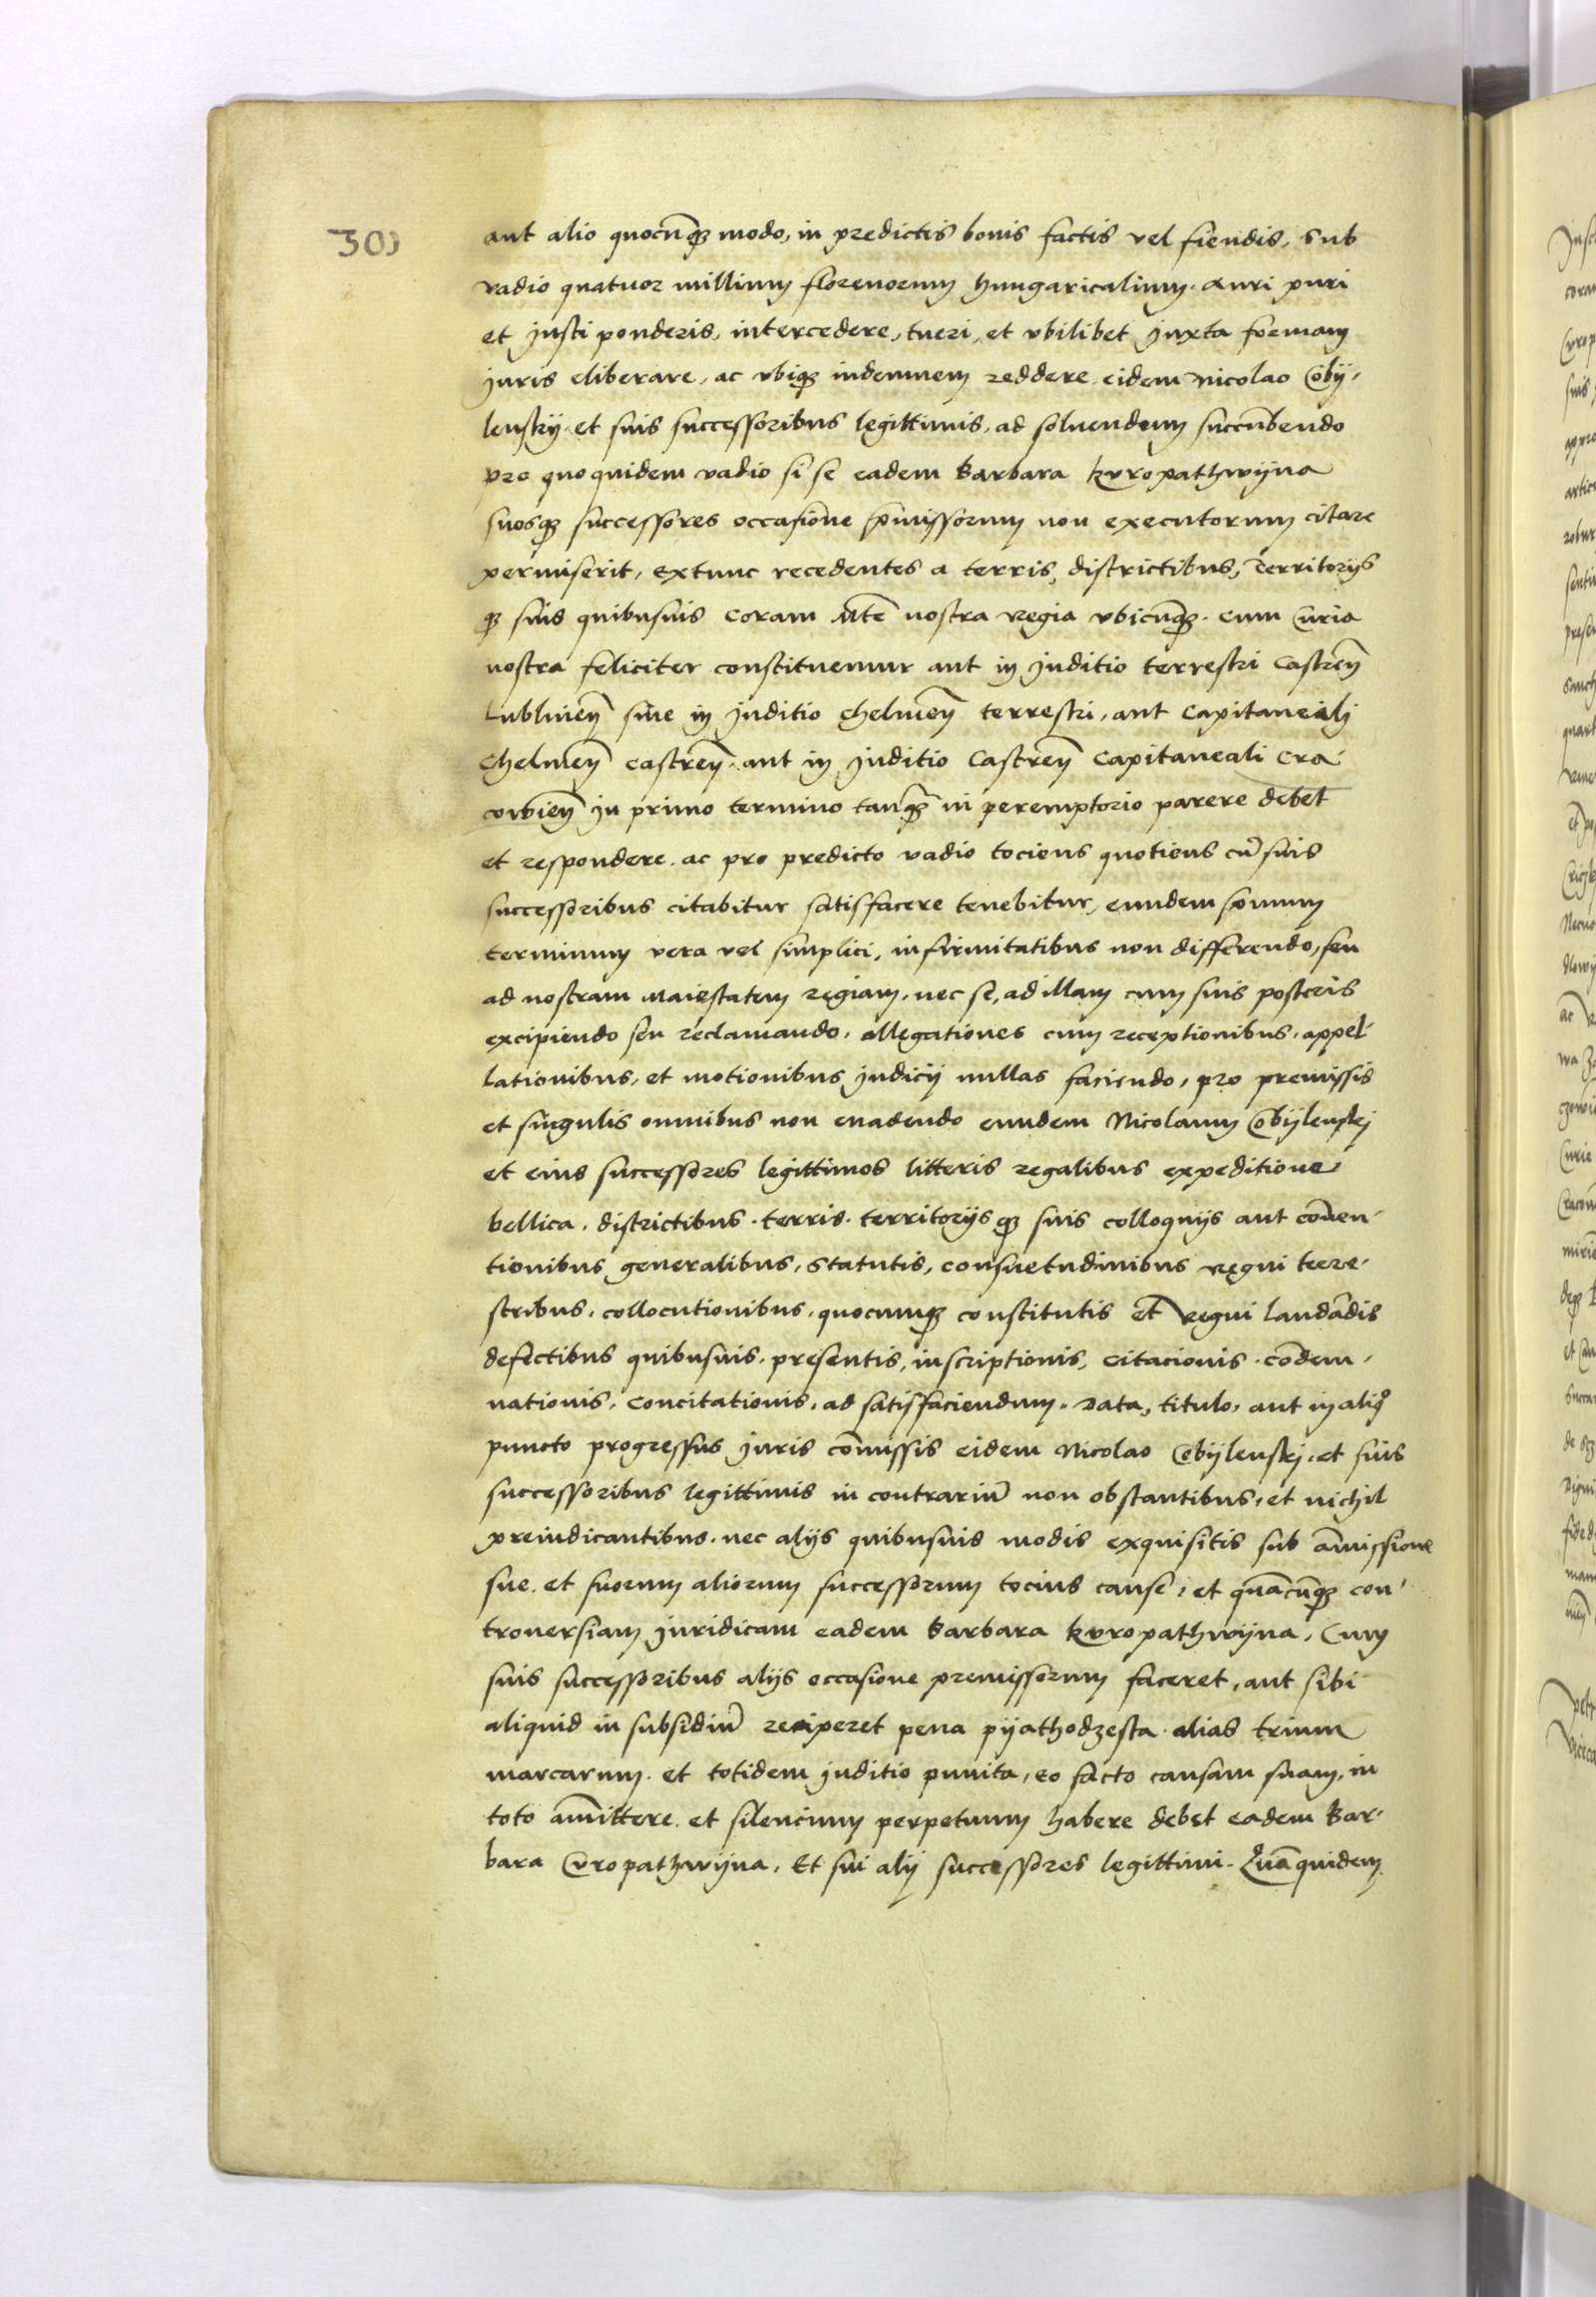 301
aut alio quocūqz modo, in predictis bonis factis vel fiendis, sub
vadio quatuor millium florenorum hungaricalium. auri puri
et justi ponderis, intercedere, tueri, et vbilibet juxta formam
juris eliberare, ac vbiqz indemnem reddere eidem Nicolao Cobij-
lenskij et suis successoribus legittimis, ad soluendum succūbendo
pro quoquidem vadio si se eadem Barbara kuropathwijna
suosqz successores occasione p̄missorum non executorum citare
permiserit, extunc recedentes a terris, districtibus, Territorijs
qz suis quibusuis coram Mt̄e nostra Regia vbicūqz. cum Curia
nostra feliciter constituemur aut in juditio terrestri Castreñ
Lublineñ siue in juditio Chelmeñ terrestri, aut Capitaneali
Chelmeñ castreñ. aut in juditio Castreñ Capitaneali Cra-
couieñ in primo termino tanq̄z in peremptorio parere debet
et respondere. ac pro predicto vadio tociens quotiens cū suis
successoribus citabitur satisfacere tenebitur, eundem primum
terminum vera vel simplici, infirmitatibus non differendo, seu
ad nostram maiestatem regiam, nec se, ad illam cum suis posteris
excipiendo seu reclamando, allegationes cum receptionibus, appel-
lationibus, et motionibus judicij nullas faciendo, pro premissis
et singulis omnibus non euadendo eundem Nicolaum Cobijlenskj
et eius successores legittimos litteris regalibus expeditione
bellica, districtibus. terris. territorijs qz suis colloquijs aut cōuen-
tionibus generalibus, statutis, consuetudinibus regni terre-
stribus, collocutionibus, quocumqz constitutis et Regni laudādis
defectibus quibusuis. presentis, inscriptionis, citacionis. cōdem-
nationis, concitationis, ad satisfaciendum. Data, titulo, aut in aliqo
puncto progressus juris cōmissis eidem Nicolao Cobijlenskj, et suis
successoribus legittimis in contrariū non obstantibus, et nichil
preiudicantibus. nec alijs quibusuis modis exquisitis sub āmissione
sue. et suorum aliorum successorum tocius cause, et quācūqz con-
trouersiam juridicam eadem Barbara kuropathwijna, Cum
suis successoribus alijs occasione premissorum faceret, aut sibi
aliquid in subsidiū reciperet pena pijathodzesta. alias trium
marcarum. et totidem juditio punita, eo facto causam suam, in
toto āmittere. et silencium perpetuum habere debet eadem Bar-
bara Curopathwijna, Et sui alij successores legittimi. Quāquidem